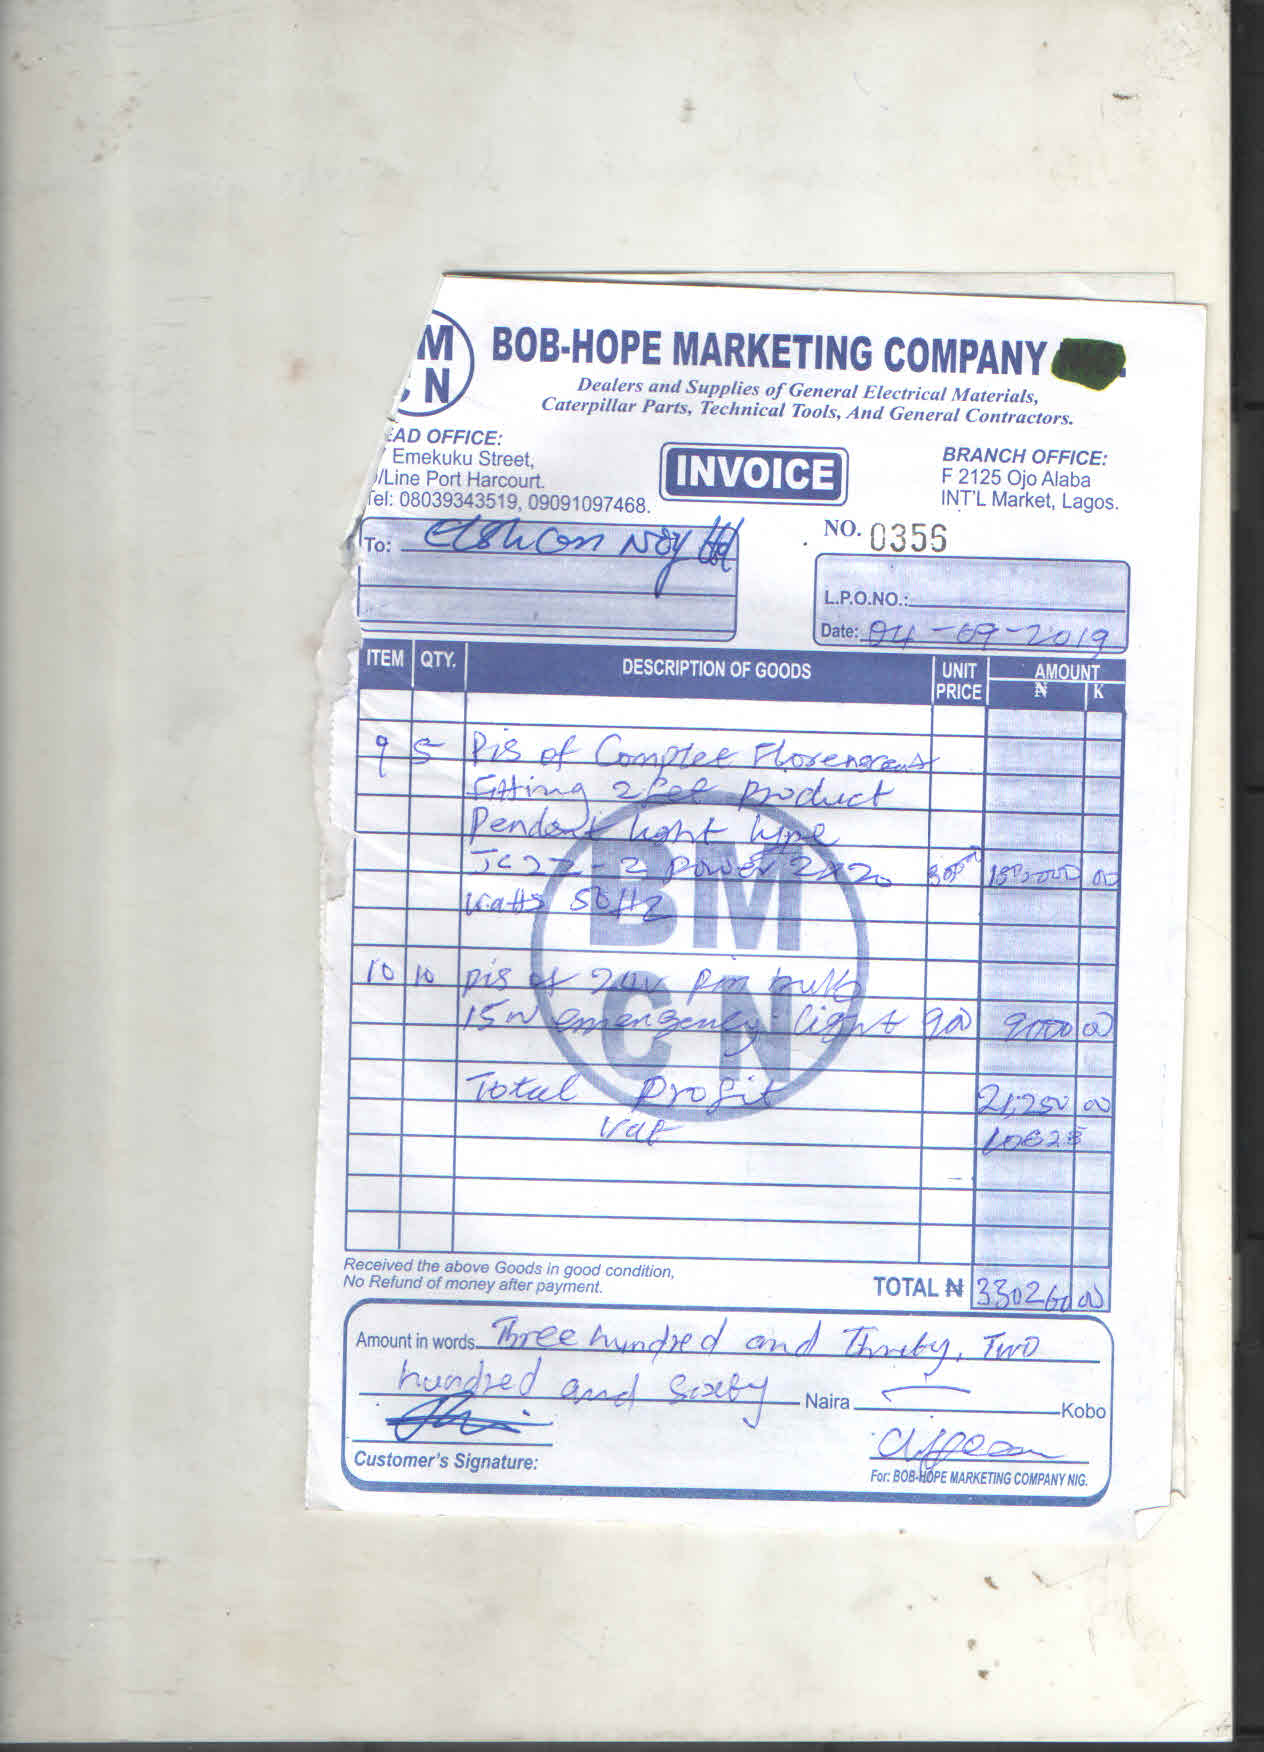 M
C N
BOB-HOPE MARKETING COMPANY
Dealers and Supplies of General Electrical Materials,
Caterpillar Parts, Technical Tools, And General Contractors.
EAD OFFICE:
Emekuku Street,
/Line Port Harcourt.
Tel: 08039343519, 09091097468.
INVOICE
BRANCH OFFICE:
F 2125 Ojo Alaba
INT'L Market, Lagos.
To: Nig Ltd
NO. 0356
L.P.O.NO.:
Date: 04-09-2019
ITEM QTY. DESCRIPTION OF GOODS UNIT PRICE AMOUNT ₦ K
9 5 Pis of Complet
Fitting 2 product
Pendant light type
JC22-2 power 2x20 00
Watts 50Hz
10 10 pis of 24v Pin bulb
15w emergency light 900 9000 00
Total Profit 21,250 00
Vat
BM
CN
Received the above Goods in good condition,
No Refund of money after payment.
TOTAL ₦ 330260 00
Amount in words Three hundred and Thirty, Two
hundred and Sixty Naira Kobo
Customer's Signature:
For: BOB-HOPE MARKETING COMPANY NIG.